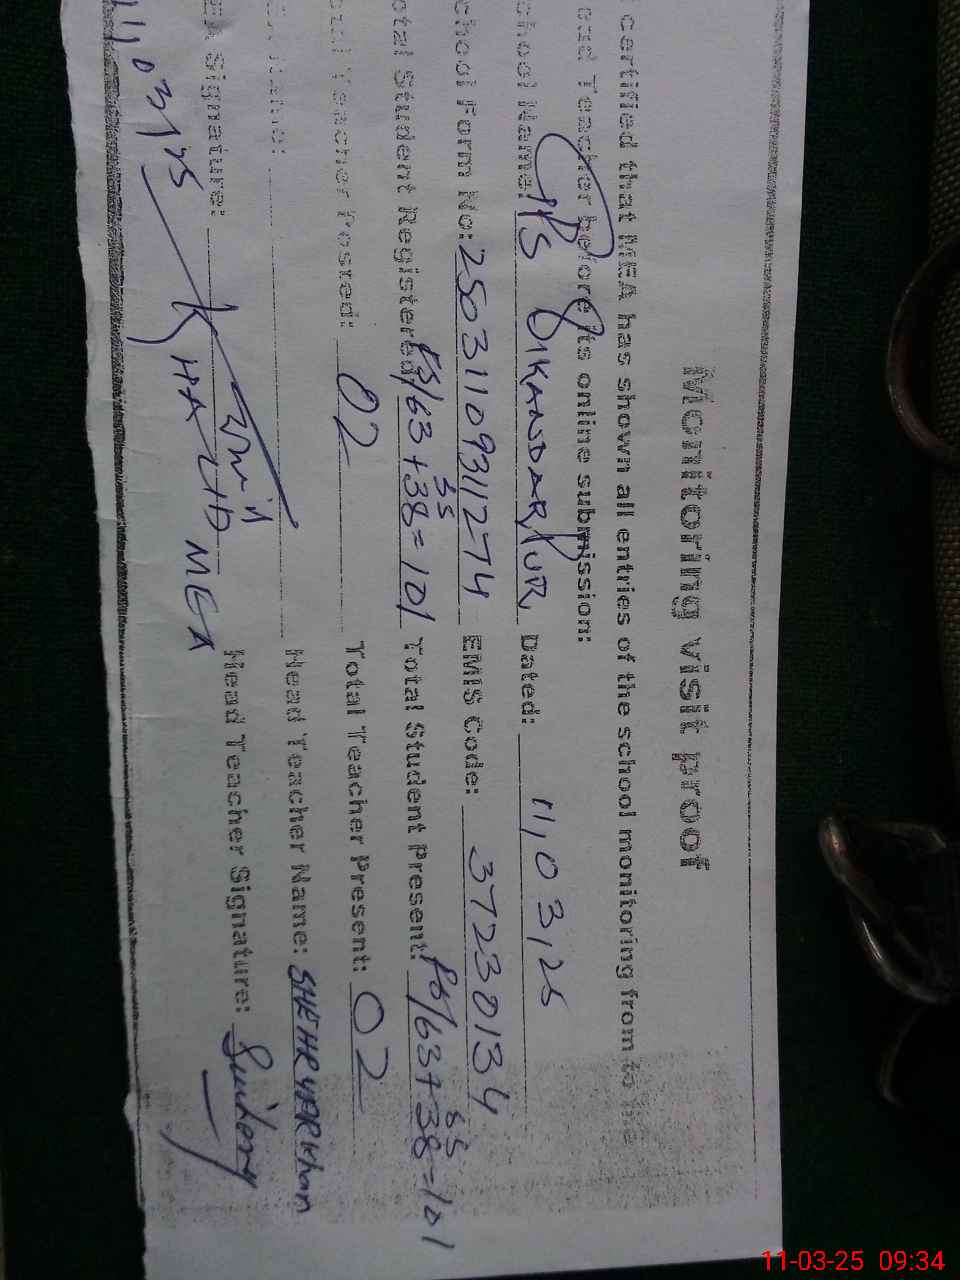 Monitoring visit proof
certified that MEA has shown all entries of the school monitoring from to the
Teacher before its online submission:
School Name: GPS DIKANDARPUR Dated: 11,03,25
School Form No: 25031109311274 EMIS Code: 37230134
Total Student Registered /63+38=101 Total Student Present: /63+38=101
Total Teacher Posted: 02 Total Teacher Present: 02
Name: Head Teacher Name: SHEHRYAR Khan
Signature: KHALID MEA Head Teacher Signature:
11-03-25 09:34